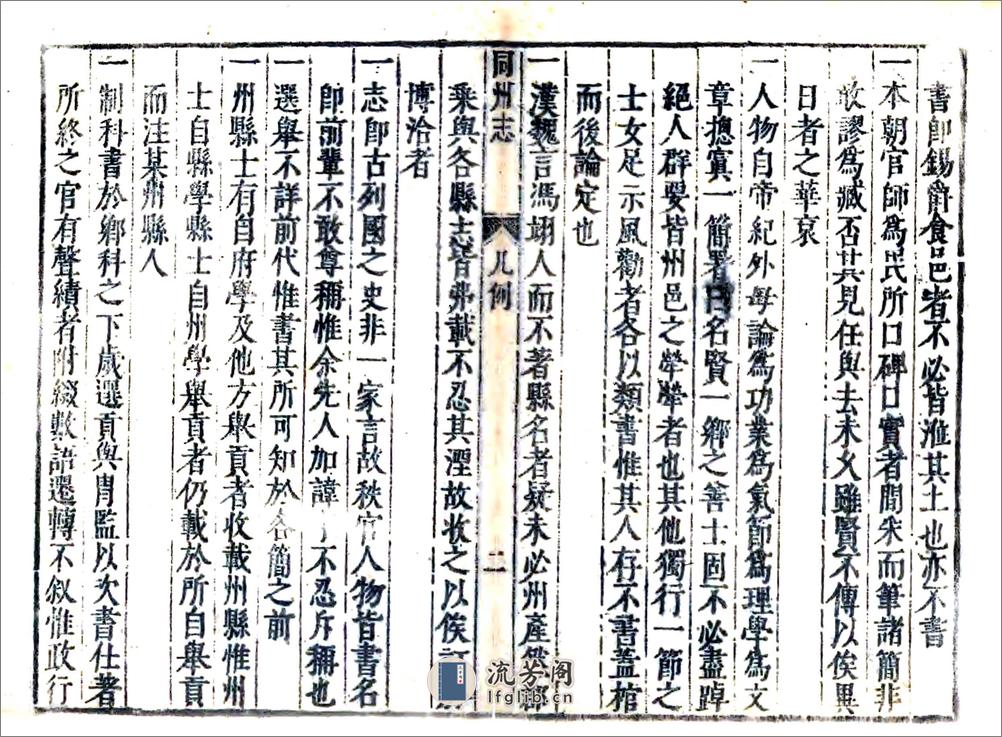 書卽錫爵食邑者不必皆淮其土也亦不書
一本朝官師爲民所口碑口實者間采而筆諸簡非
敢謬爲臧否其見任與去未久雖賢不傳以俟異
日者之華袞
一人物自帝紀外毋論爲功業爲氣節爲理學爲文
章摠寘一簡署曰名賢一鄉之善士固不必盡踔
絕人群要皆州邑之犖犖者也其他獨行一節之
士女足示風勸者各以類書惟其人存不書蓋棺
而後論定也
一漢魏言馮翊人而不著縣名者疑未必州產然郡
同州志 凡例 二
乘與各縣志皆弗載不忍其湮故收之以俟
博洽者
一志卽古列國之史非一家言故秩官人物皆書名
卽前輩不敢尊稱惟余先人加諱 不忍斥稱也
一選舉不詳前代惟書其所可知於各簡之前
一州縣士有自府學及他方舉貢者收載州縣惟州
士自縣學縣士自州學舉貢者仍載於所自舉貢
而注某州縣人
一制科書於鄉科之下歲選貢與胄監以次書仕著
所終之官有聲績者附綴數語遷轉不叙惟政行
流芳阁
lfglib.cn